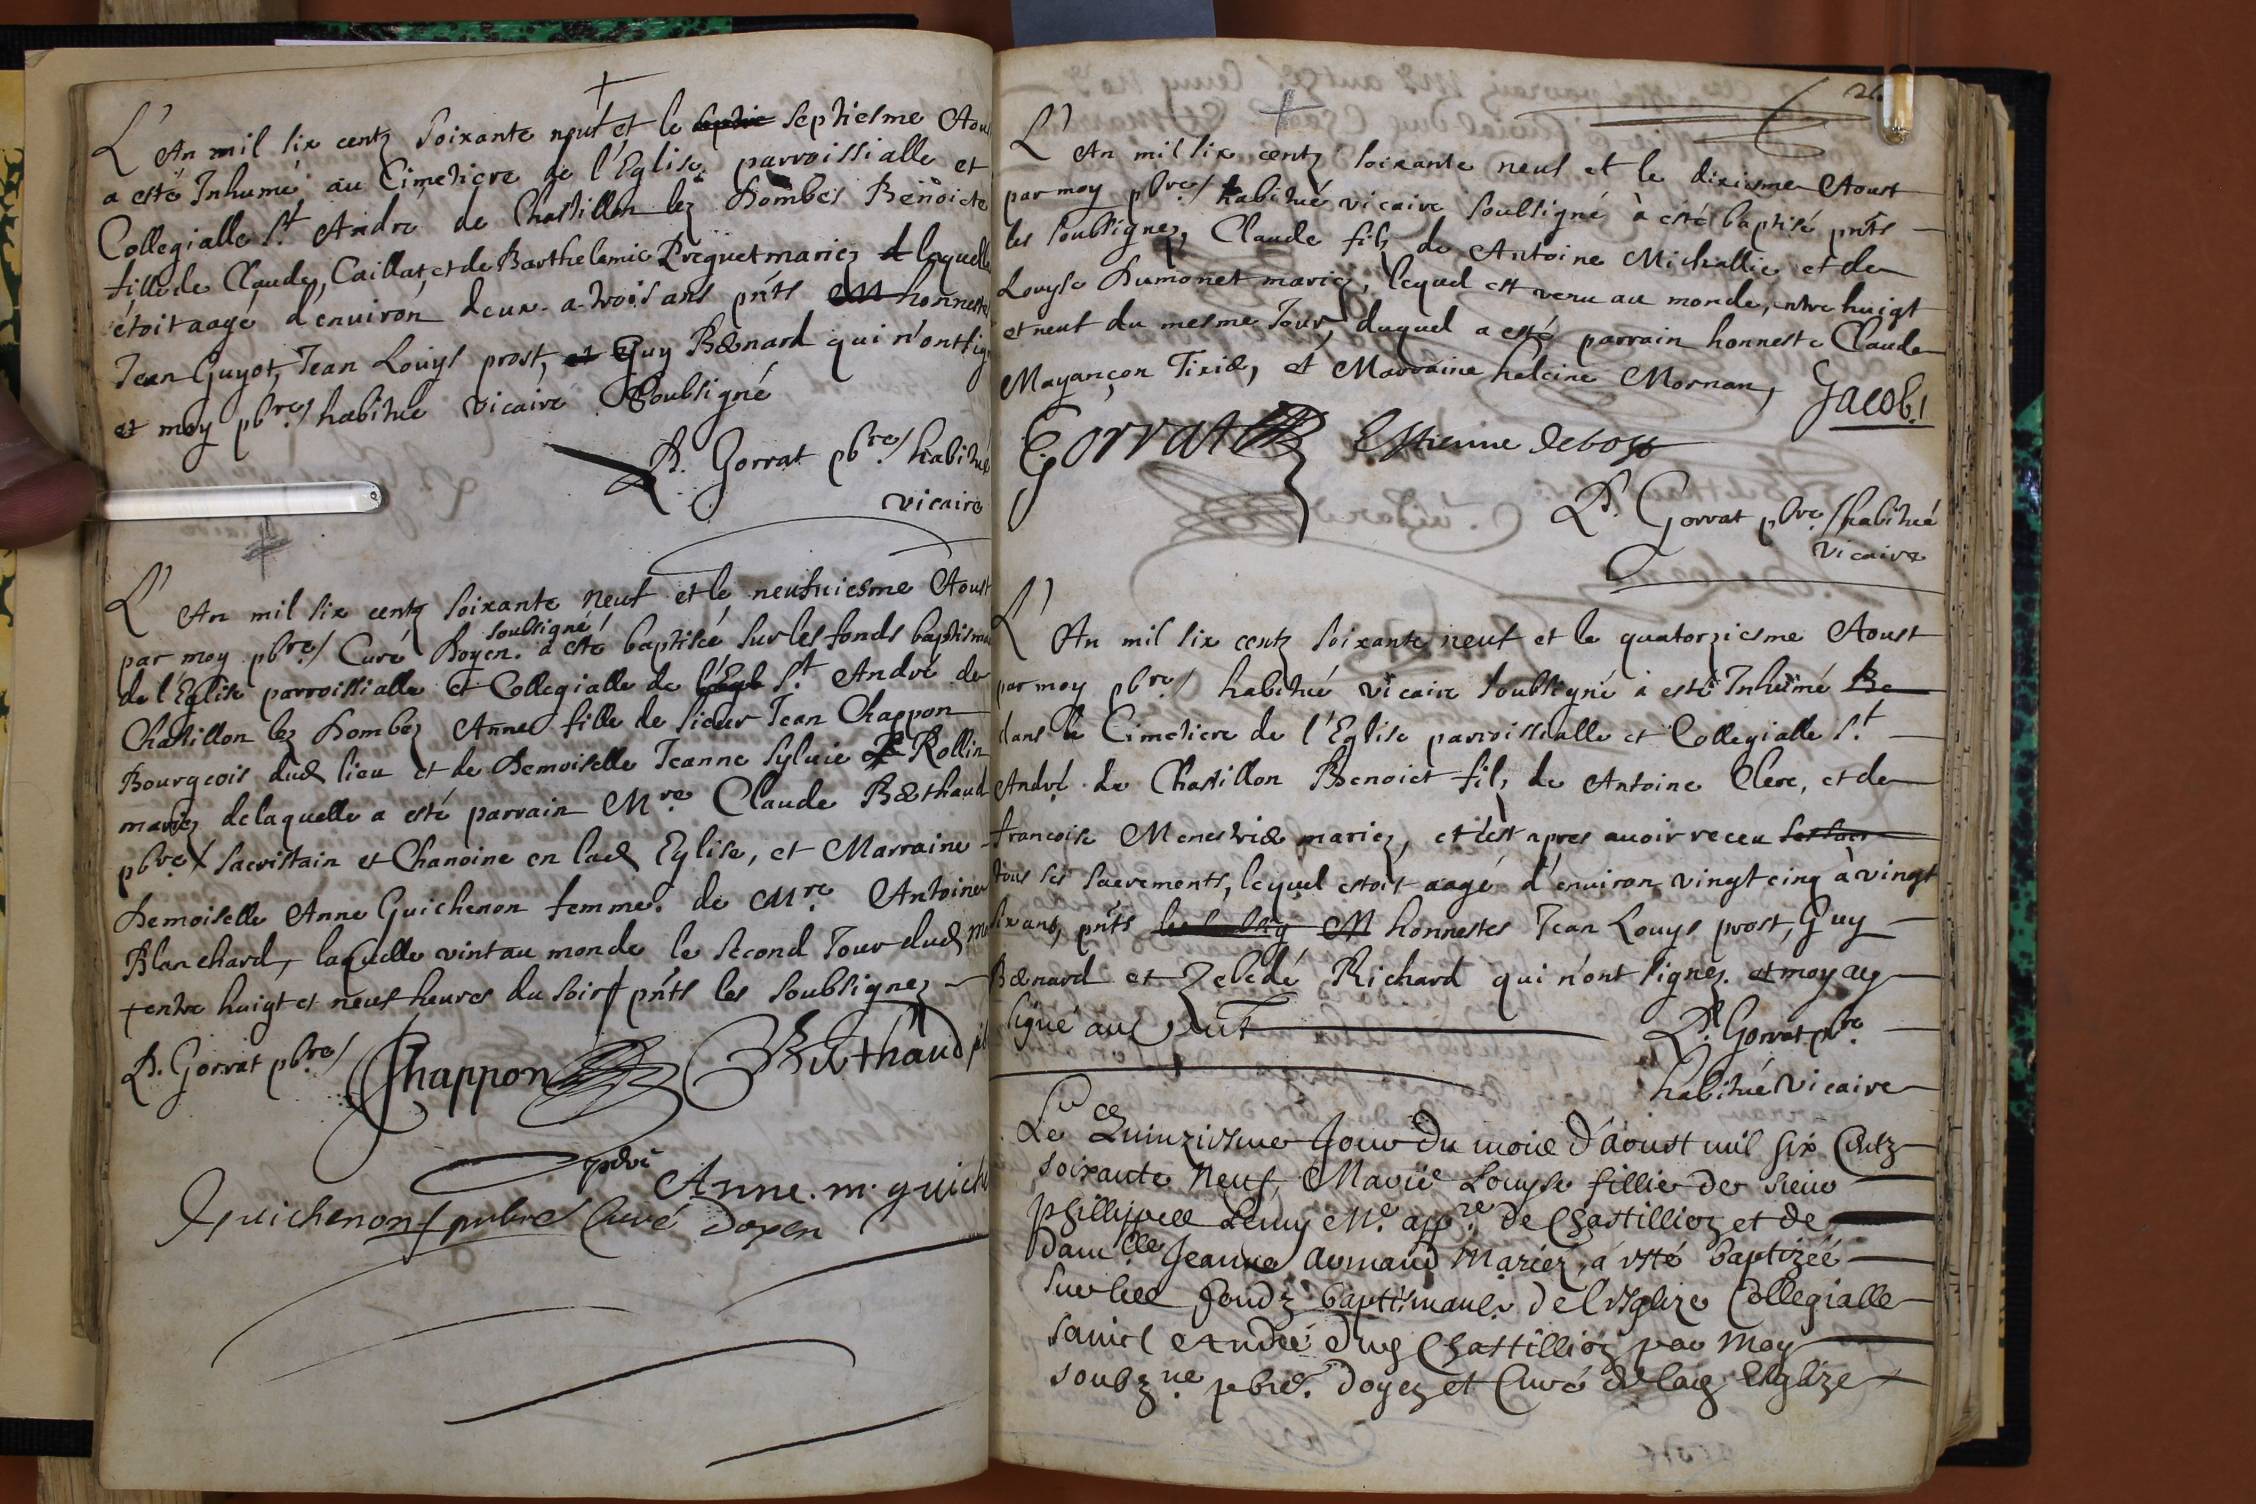 L'An mil six centz soixante neuf et le septiesme Aou
a esté Inhumé au Cimetiere de l'Eglise parroissialle et
Collegialle St Andre de Chastillon lez Dombes Benoicte
fille de Claude Caillat, et de Barthelemie Preguet mariez laquelle
étoit aagé d'environ deux a trois ans pnts honnestes
Jean Guyot, Jean Louys prost, Guy Benard qui n'ont sig
et moy pbre/ habitué vicaire soubsigné
P. Gorrat pbre/ habitué
vicaire
L'An mil six centz soixante neuf et le neufuiesme Aoust
soubsigné/
par moy pbre/ Curé Doyen a esté baptisée sur les fonds baptisma
de l'Eglise parroissialle et Collegialle de St André de
Chastillon lez Dombez Anne fille de sieur Jean Chappon
Bourgeois dud lieu et de Demoiselle Jeanne Sylvie Rollin
mariez delaquelle a esté parrain Mre Claude Berthaud
pbre/ sacristain et Chanoine en lad Eglise, et Marraine
Demoiselle Anne Guichenon femme de Mre Antoine
Blanchard, laquelle vint au monde le second Jour dud m
+ entre huigt et neuf heures du soir + pnts les soubsignez
P. Gorrat pbre/ Chappon Berthaud
Anne. m. guich
Guichenon pbre Curé doyen
L'An mil six centz soixante neuf et le dixiesme Aoust
par moy pbre/ habitué vicaire soubsigné à esté baptisé pnts
les soubsignez, Claude filz de Antoine Michallie et de
Louyse Dumonet mariez, lequel est venu au monde, entre huigt
et neuf du mesme Jour, duquel a esté parrain honneste Claude
Mayançon Tixier, et Marraine heleine Mornan, Jacob.
Gorrat Estienne debost
P. Gorrat pbre/ habitué
vicaire
L'An mil six centz soixante neuf et le quatorziesme Aoust
par moy pbre/ habitué vicaire soubsigné à esté Inhumé Be
dans le Cimetiere de l'Eglise parroissialle et Collegialle St
André de Chastillon Benoict filz de Antoine Clerc, et de
francoise Menestrier mariez, et c'est apres auoir receu
tous ses sacrements, lequel estoit aagé d'environ vingt cinq à vingt
six ans, pnts honnestes Jean Louys prost, Guy
Benard et Zebedé Richard qui n'ont signez. et moy ay
signé
P. Gorrat pbre
habitué vicaire
Le Quinziesme Jour Du mois d'aoust mil six Centz
soixante neuf, Marie Louyse fillie de sieur
phillippes Lemy Me appre de Chastillion et de
Damlle Jeanne armand Mariéz, a esté baptizéé
sur les fondz baptismaulx de l'Esglize Collegialle
sainct André dud Chastillion par moy
soubzne pbre doyen et Curé de lad Esglize